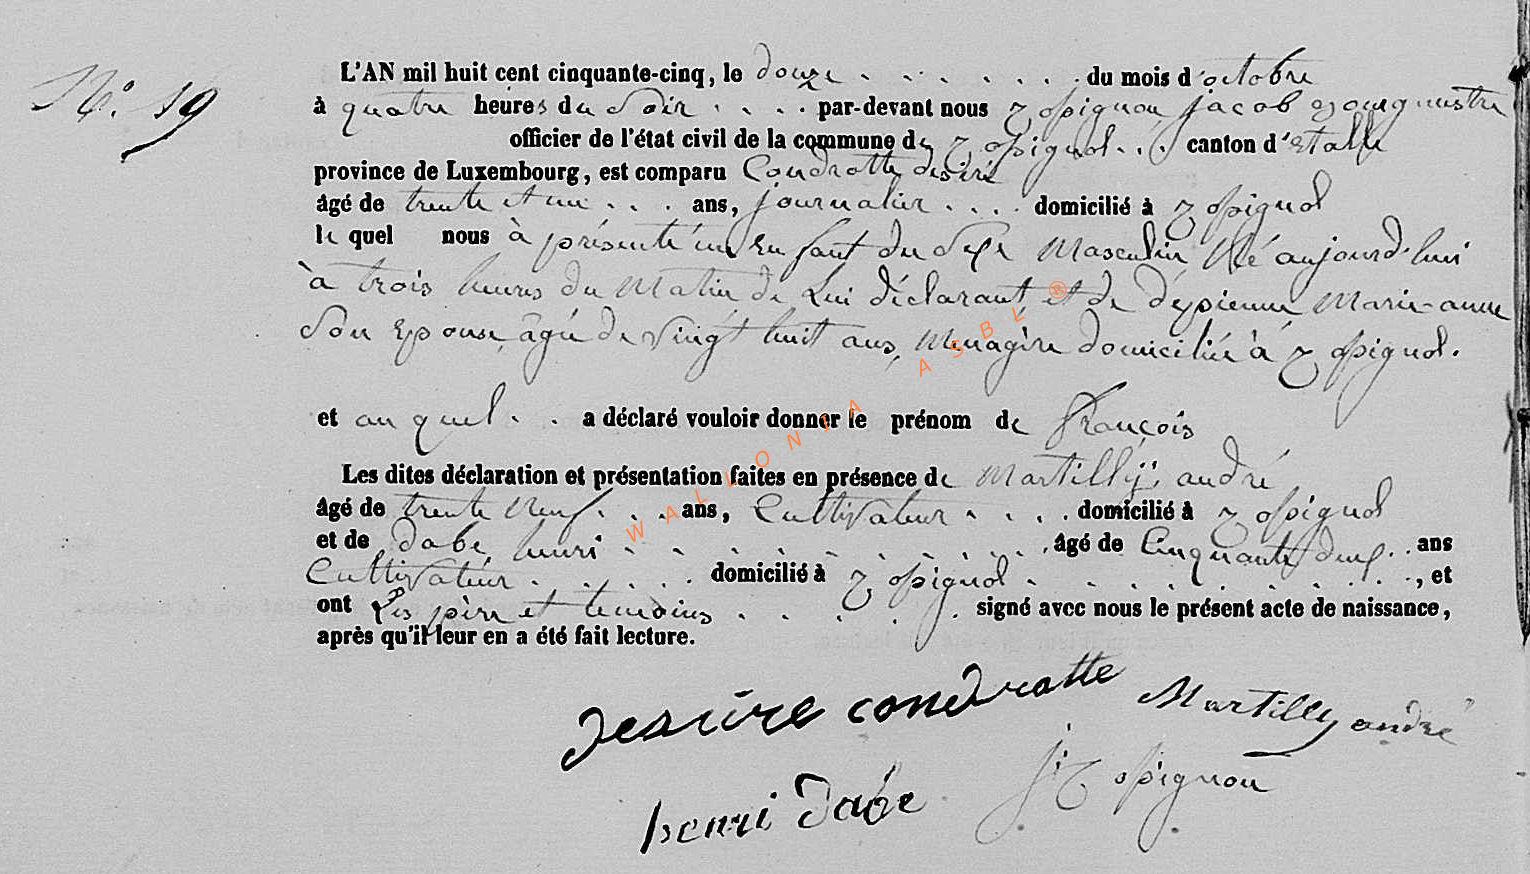 N° 19
L'AN mil huit cent cinquante-cinq, le douze . . . . . . . du mois d'octobre
à quatre heures du Soir . . . . par-devant nous Jacob Bourgumestre
officier de l'état civil de la commune de . . . canton d'Etalle
province de Luxembourg, est comparu Condrotte désiré
âgé de trente et un . . . ans, journalier . . . . domicilié à
le quel nous à présenté un Enfant du Sexe Masculin Né aujourd'hui
à trois heures du Matin de Lui déclarant et de Marie-anne
Son Epouse, âgée de Vingt huit ans, Menagère domiciliée à
et au quel . . a déclaré vouloir donner le prénom de François
Les dites déclaration et présentation faites en présence de Martilly andré
âgé de trente Neuf . . . ans, Cultivateur . . . . domicilié à
et de dabe, henri . . . . . . . . . . âgé de Cinquante deux . . ans
Cultivateur . . . . . domicilié à . . . . . . . . . , et
ont Les père et temoins . . . . . signé avec nous le présent acte de naissance,
après qu'il leur en a été fait lecture.
WALLONIA ASBL ®
desiire condrotte Martilly andré
henri dabe